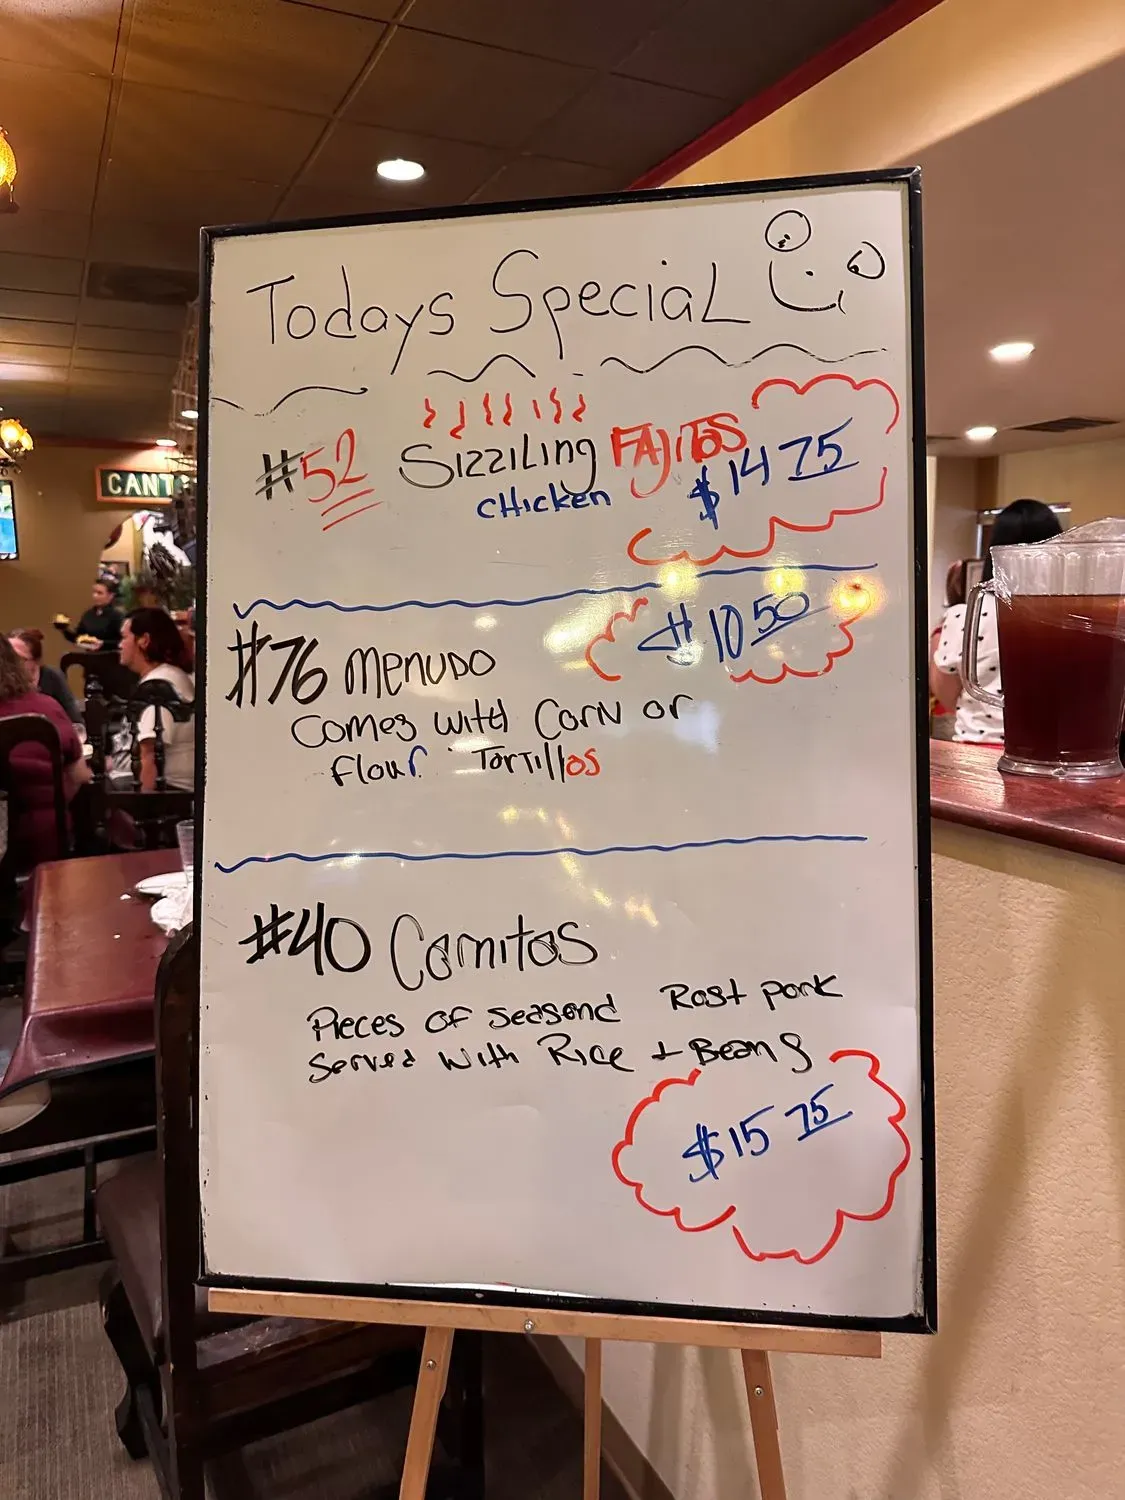 Todays Special
#52 Sizziling FAjitas
Chicken $14 75
#76 Menudo $10 50
Comes with Corn or
flour Tortillas
#40 Carnitas
Pieces of seasond Rost pork
Served with Rice + Beans
$15 75
CANT